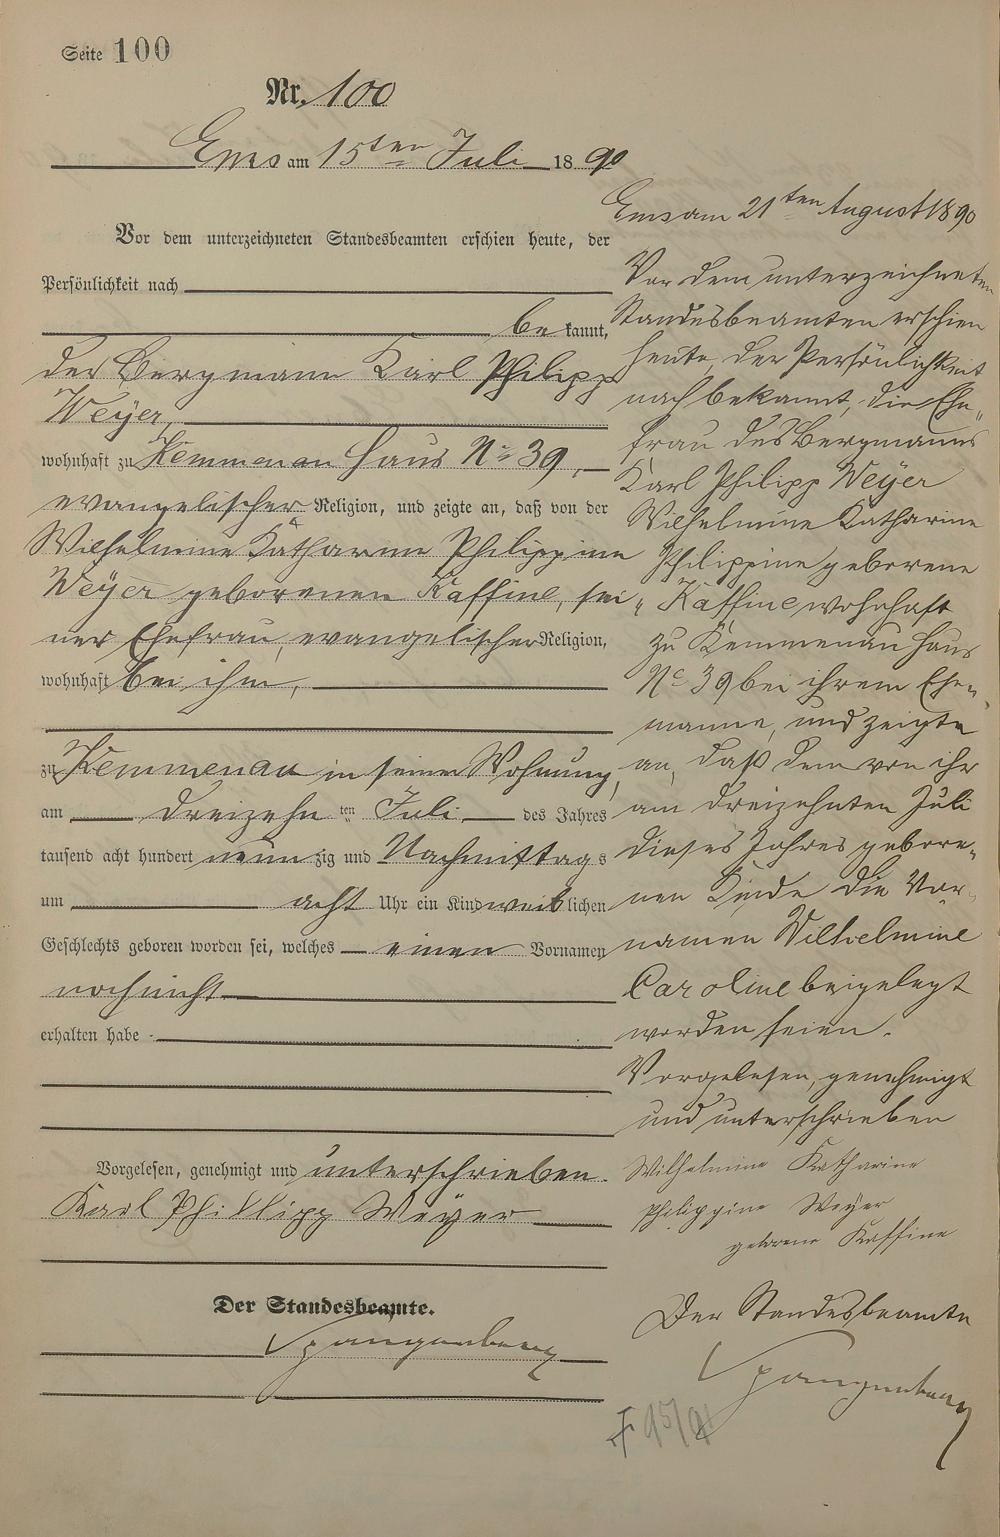 Seite 100
Nr. 100
Ems am 15ten Juli 1890
Vor dem unterzeichneten Standesbeamten erschien heute, der
Persönlichkeit nach
bekannt,
der Bergmann Karl Philipp
Weÿer,
wohnhaft zu Kemmenau Haus No 39,
evangelischer Religion, und zeigte an, daß von der
Wilhelmine Katharine Philippine
Weÿer geborenen Kaffine, sei
ner Ehefrau, evangelischer Religion,
wohnhaft bei ihm,
zu Kemmenau in seiner Wohnung,
am dreizehn ten Juli des Jahres
tausend acht hundert neunzig und Nachmittags
um acht Uhr ein Kind weiblichen
Geschlechts geboren worden sei, welches einen Vornamen
noch nicht
erhalten habe
Vorgelesen, genehmigt und unterschrieben.
Karl Phillipp Weÿer
Der Standesbeamte.
Spangenberg
Ems am 21ten August 1890
Vor dem unterzeichneten
Standesbeamten erschien
heute, der Persönlichkeit
nach bekannt, die Ehe„
frau des Bergmanns
Karl Philipp Weÿer
Wilhelmine Katharine
Philippine geborene
„ Kaffine wohnhaft
zu Kemmenau Haus
No 39 bei ihrem Ehe„
manne, und zeigte
an, daß dem von ihr
am dreizehnten Juli
dieses Jahres gebore„
nen Kinde die Vor„
namen Wilhelmine
Caroline beigelegt
worden seien.
Vorgelesen, genehmigt
und unterschrieben
Wilhelmine Katharine
Philippine Weÿer
geborene Kaffine
Der Standesbeamte
Spangenberg